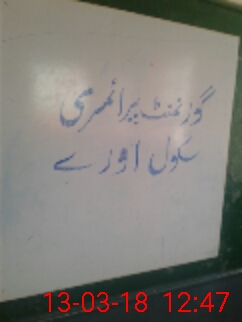 گورنمنٹ پرائمری
سکول اوزے
13-03-18 12:47